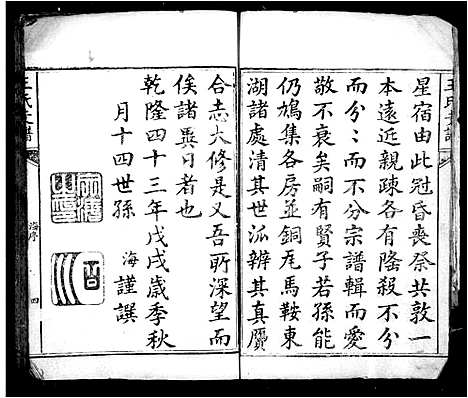 星宿由此冠昏喪祭共敦一
本遠近親疎各有隆殺不分
而分〻而不分宗譜輯而愛
敬不衰矣嗣有賢子若孫能
仍鳩集各房並銅厐馬鞍東
湖諸處清其世派辨其真贗
合志大修是又吾所深望而
俟諸異日者也
乾隆四十三年戊戌歲季秋
月十四世孫 海謹譔
海序
四